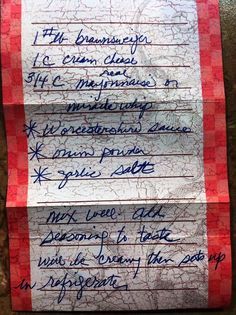 1 # lb braunsweyer
1 C cream cheese
real
3/4 C mayonnaise or
miracle whip
* Worcestershire sauce
* onion powder
* garlic salt
mix well add
seasoning to taste
will be creamy then sets up
in refrigerate